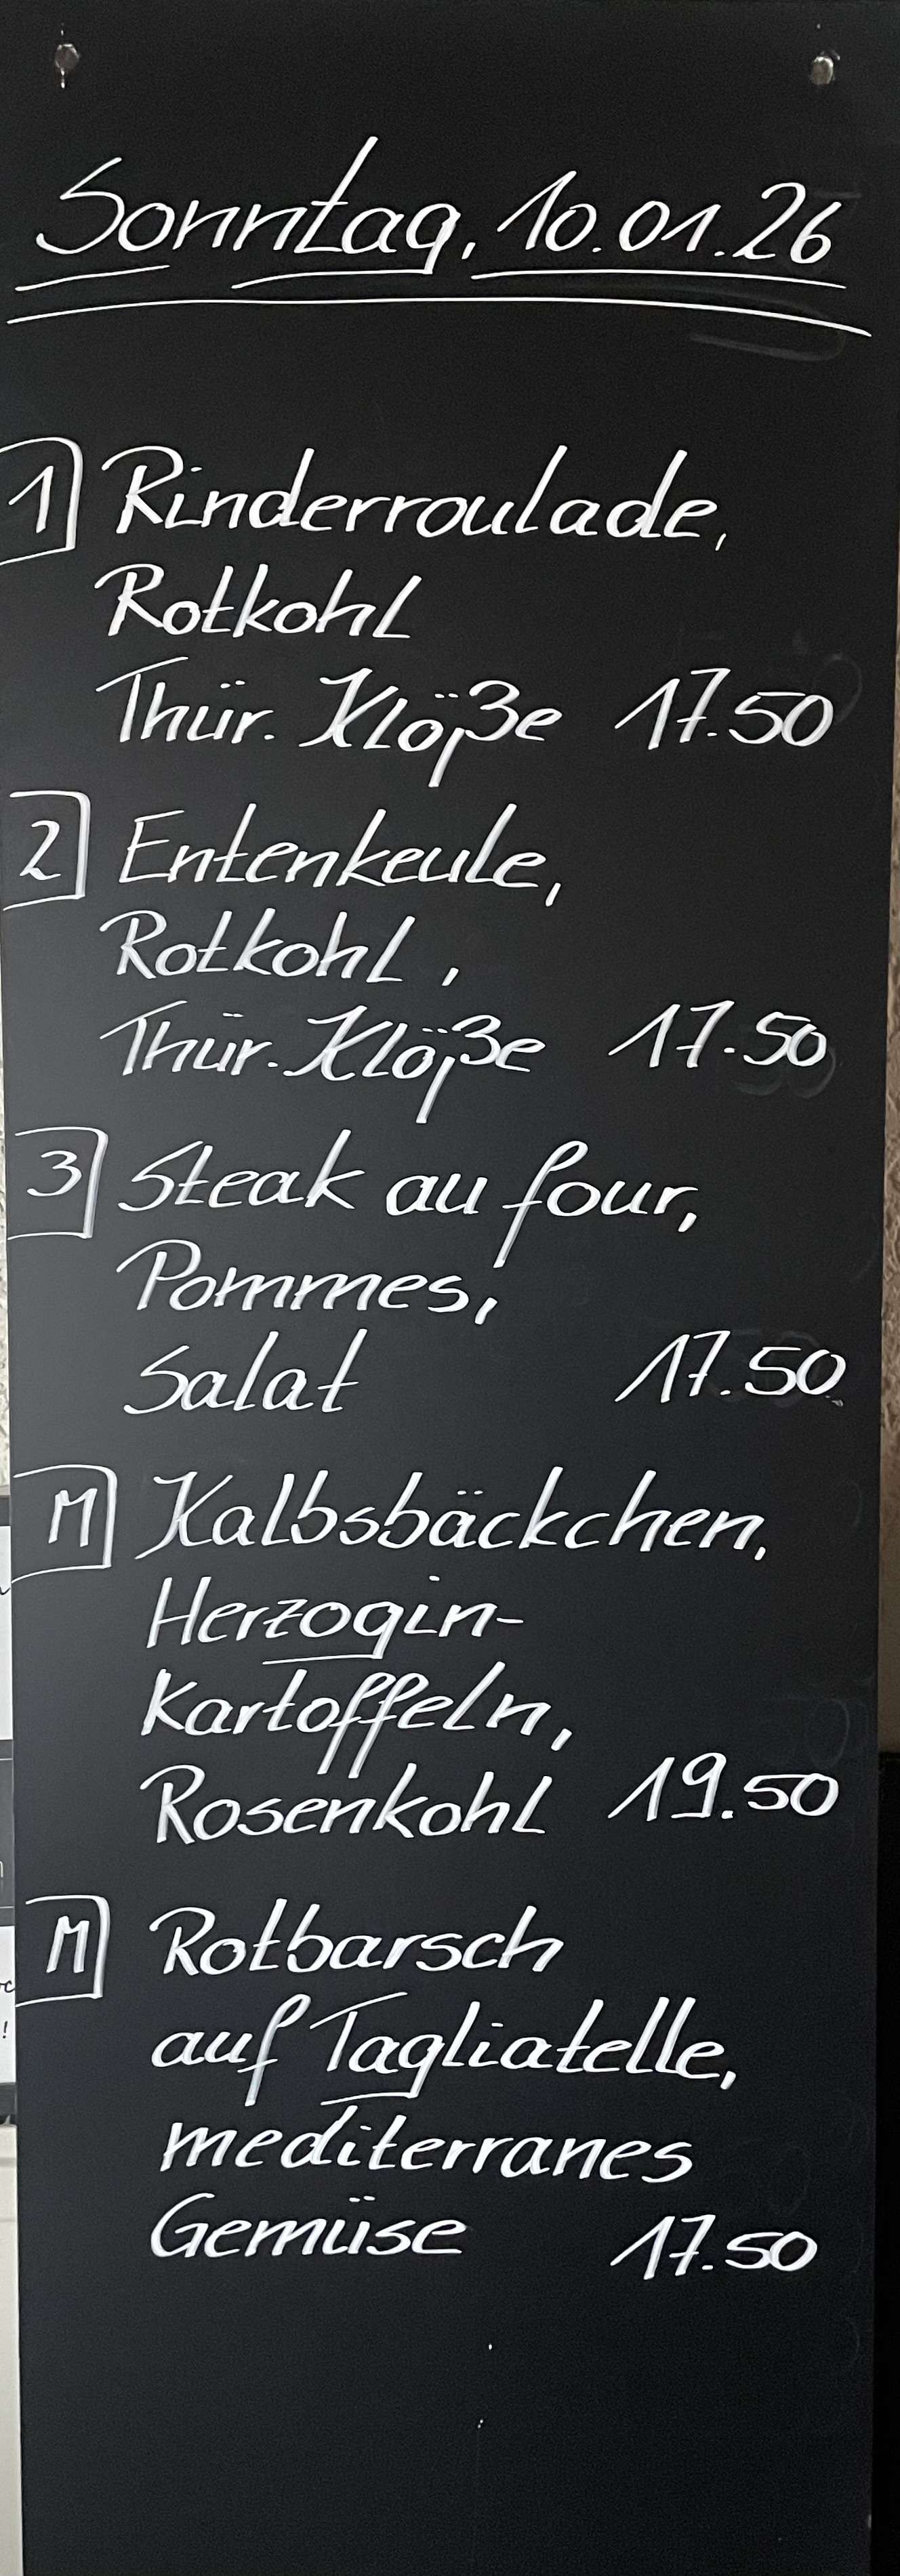 Sonntag, 10.01.26
1 Rinderroulade,
Rotkohl
Thür. Klöße 17.50
2 Entenkeule,
Rotkohl,
Thür. Klöße 17.50
3 Steak au four,
Pommes,
Salat 17.50
M Kalbsbäckchen,
Herzogin-
Kartoffeln,
Rosenkohl 19.50
M Rotbarsch
auf Tagliatelle,
mediterranes
Gemüse 17.50